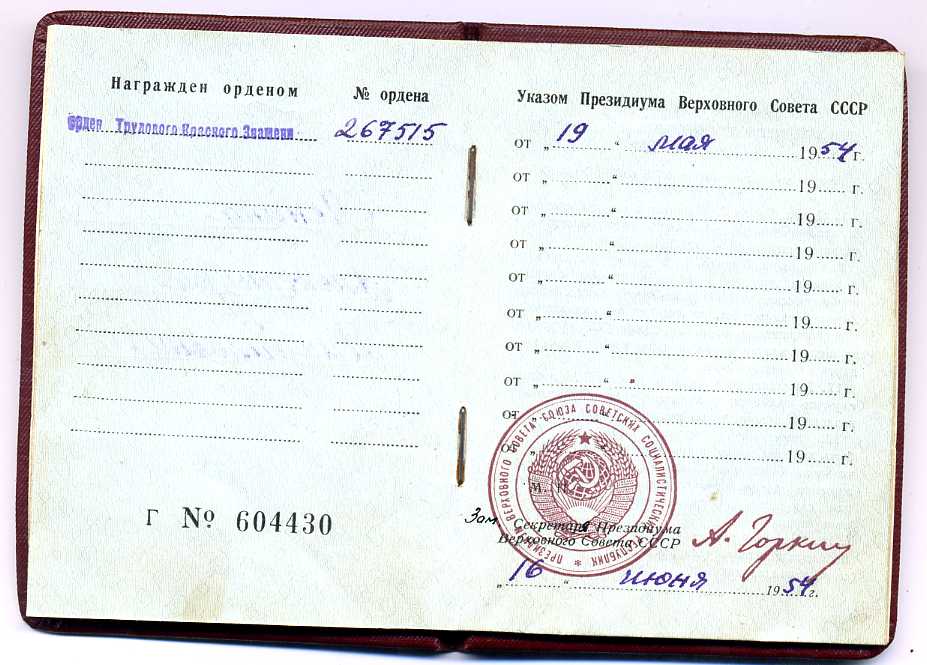 Награжден орденом № ордена
Орден Трудового Красного Знамени 267515
Г № 604430
Указом Президиума Верховного Совета СССР
от „ 19 “ мая 1954 г.
от „ “ 19 г.
от „ “ 19 г.
от „ “ 19 г.
от „ “ 19 г.
от „ “ 19 г.
от „ “ 19 г.
от „ “ 19 г.
от „ “ 19 г.
от „ “ 19 г.
ПРЕЗИДИУМ ВЕРХОВНОГО СОВЕТА СОЮЗА СОВЕТСКИХ СОЦИАЛИСТИЧЕСКИХ РЕСПУБЛИК
М. П.
Зам Секретаря Президиума
Верховного Совета СССР А. Горкин
„ 16 “ июня 1954 г.